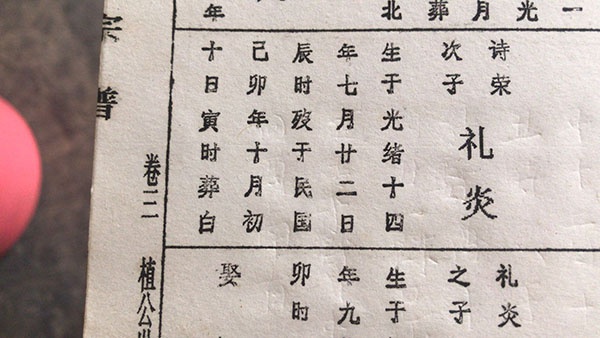 一
光
月
葬
北
年
诗荣
次子
礼炎
生于光绪十四
年七月廿二日
辰时殁于民国
己卯年十月初
十日寅时葬白
礼炎
之子
生于
年九
卯时
娶
宗谱
卷三
植公